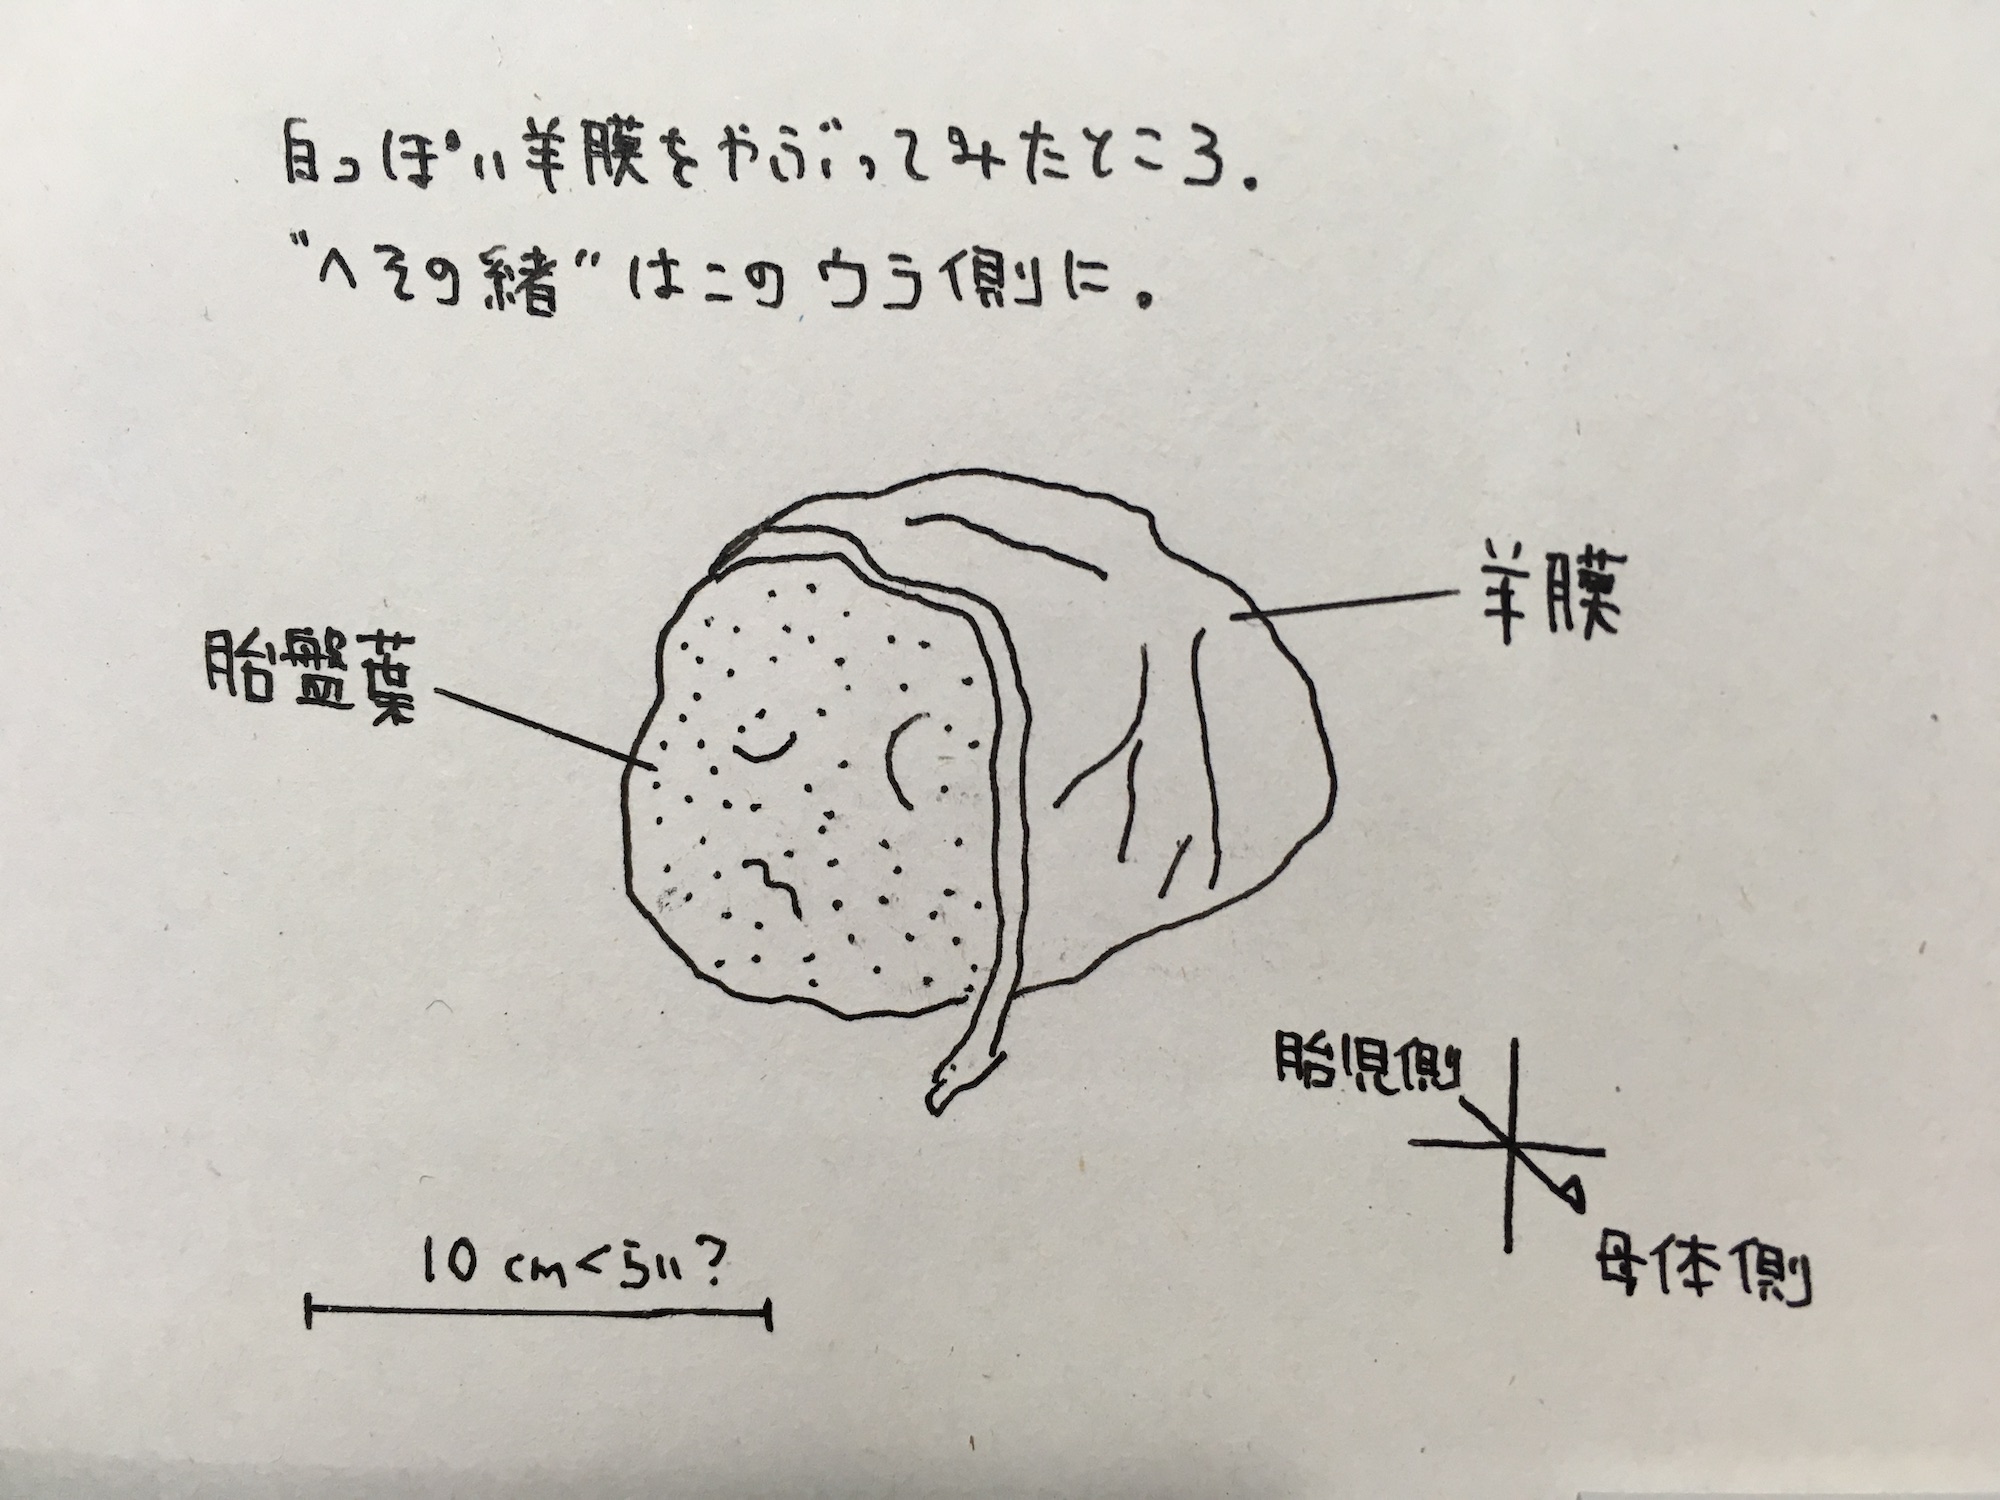 白っぽい羊膜をやぶってみたところ.
"へその緒"はこのウラ側に.
羊膜
胎盤葉
胎児側
母体側
10cmくらい?